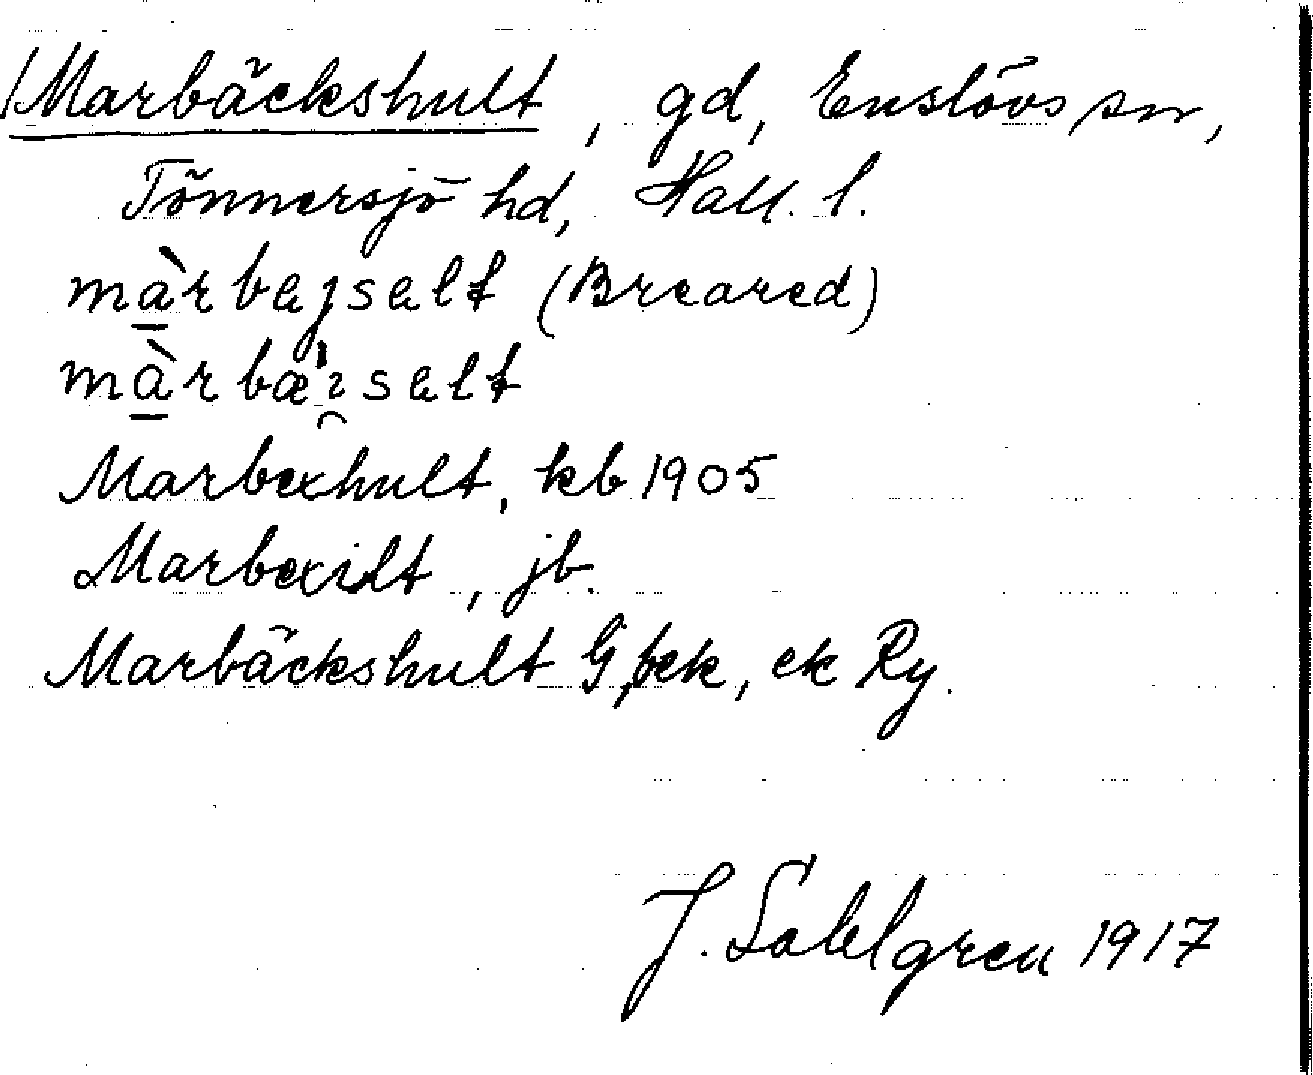 Marbäckshult, gd, Enslövs sn,
Tönnersjö hd, Hall. l.
màrbajsalt (Breared)
màrbæ'ısalt
Marbexhult, kb 1905
Marbexilt, jb.
Marbäckshult G, bek, ek Ry.
J. Sahlgren 1917